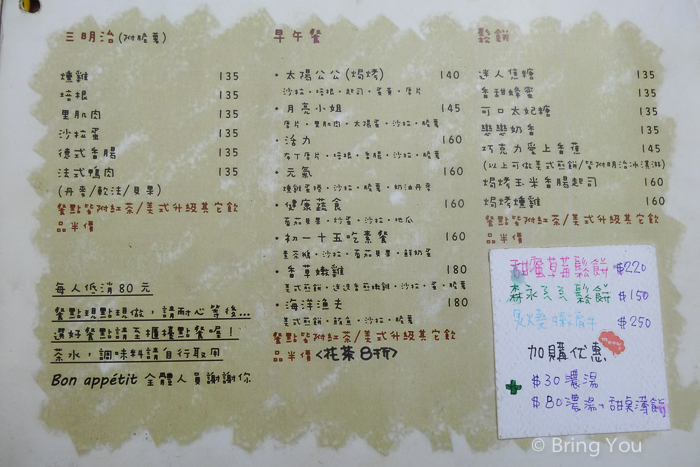 三明治(附脆薯)
燻雞 135
培根 135
里肌肉 135
沙拉蛋 135
德式香腸 135
法式鴨肉 135
(丹麥/軟法/貝果)
餐點皆附紅茶/美式升級其它飲
品半價
每人低消80元
餐點現點現做，請耐心等後...
選好餐點請至櫃檯點餐喔！
茶水，調味料請自行取用
Bon appétit 全體人員謝謝你
早午餐
・太陽公公(焗烤) 140
沙拉・培根・起司・蛋黃・厚片
・月亮小姐 145
厚片・里肌肉・太陽蛋・沙拉・脆薯
・活力 160
布丁厚片・培根・香腸・沙拉・脆薯
・元氣 160
燻雞蛋捲・沙拉・脆薯・奶油丹麥
・健康蔬食 160
番茄貝果・炒蛋・沙拉・地瓜
・初一十五吃素餐 160
素茶糖・沙拉・番茄貝果・鮮奶蛋
・香草嫩雞 180
美式煎餅・迷迭香嫩雞・沙拉・脆薯
・海洋漁夫 180
美式煎餅・鮭魚・沙拉・脆薯
餐點皆附紅茶/美式升級其它飲
品半價<花茶8折>
鬆餅
迷人焦糖 135
香甜蜂蜜 135
可口太妃糖 135
戀戀奶香 135
巧克力愛上香蕉 145
(以上可做美式煎餅/皆附明治冰淇淋)
焗烤玉米香腸起司 160
焗烤燻雞 160
餐點皆附紅茶/美式升級其它飲
品半價
甜蜜草莓鬆餅 $220
森永多多鬆餅 $150
$250
加購優惠
+ $30濃湯
$80濃湯、甜點薄餅
© Bring You